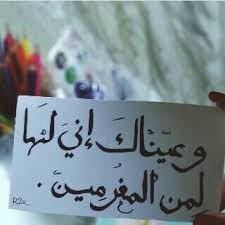 وعيناك إني لها
لمن المغرمين .
R2v_